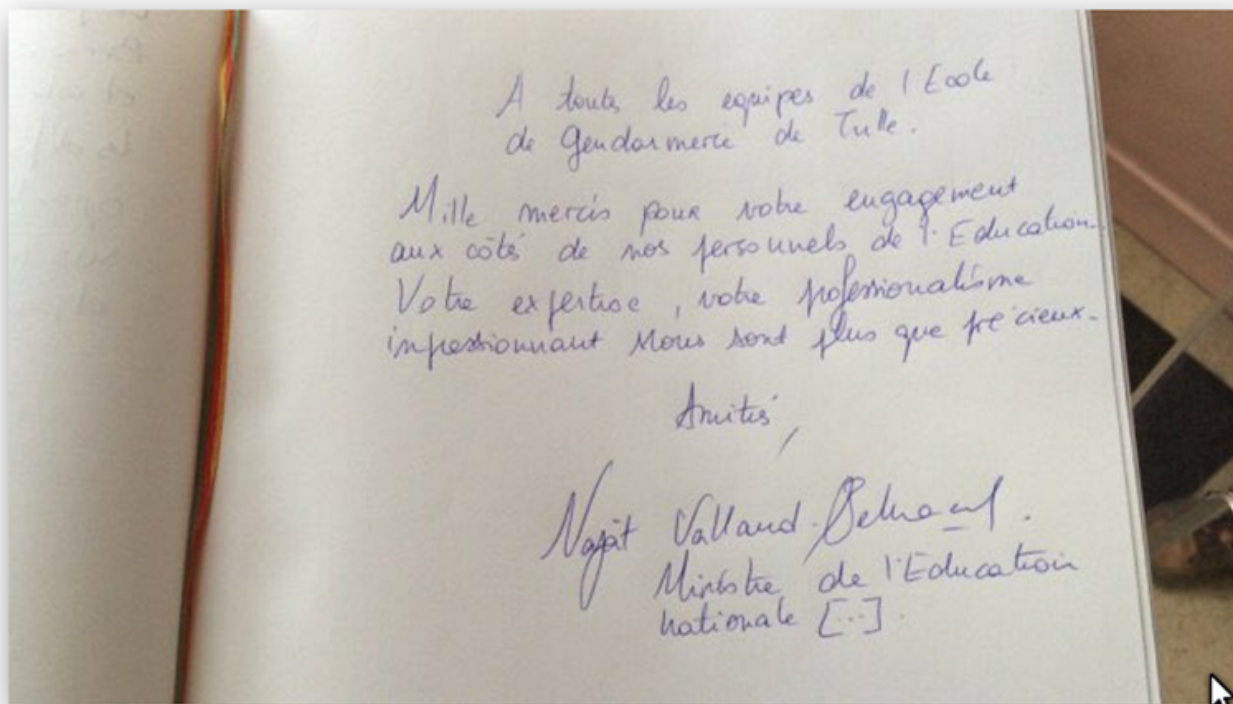 A toutes les equipes de l'Ecole
de Gendarmerie de Tulle.
Mille mercis pour votre engagement
aux côtés de nos personnels de l'Education.
Votre expertise, votre professionnalisme
impressionnant nous sont plus que précieux.
Amitiés,
Najat Vallaud-Belkacem.
Ministre de l'Education
nationale [...].